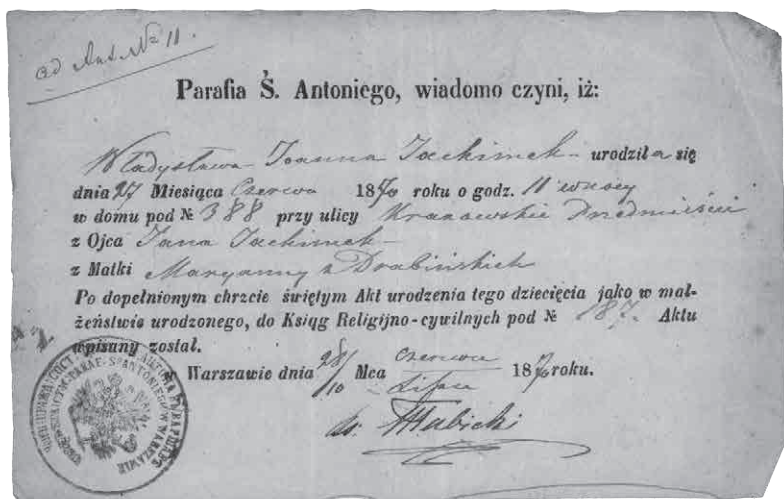 ad Akt. № 11.
Parafia Ś. Antoniego, wiadomo czyni, iż:
Władysława Joanna Jachimek urodziła się
dnia 27 Miesiąca Czerwca 1870 roku o godz. 11 w nocy
w domu pod № 388 przy ulicy Krakowskie Przedmieście
z Ojca Jana Jachimek
z Matki Maryanny z Drabińskich
Po dopełnionym chrzcie świętym Akt urodzenia tego dziecięcia jako w mał-
żeństwie urodzonego, do Ksiąg Religijno-cywilnych pod № 187. Aktu
wpisany został.
w Warszawie dnia 28/10 Mca Czerwca/Lipca 1870 roku.